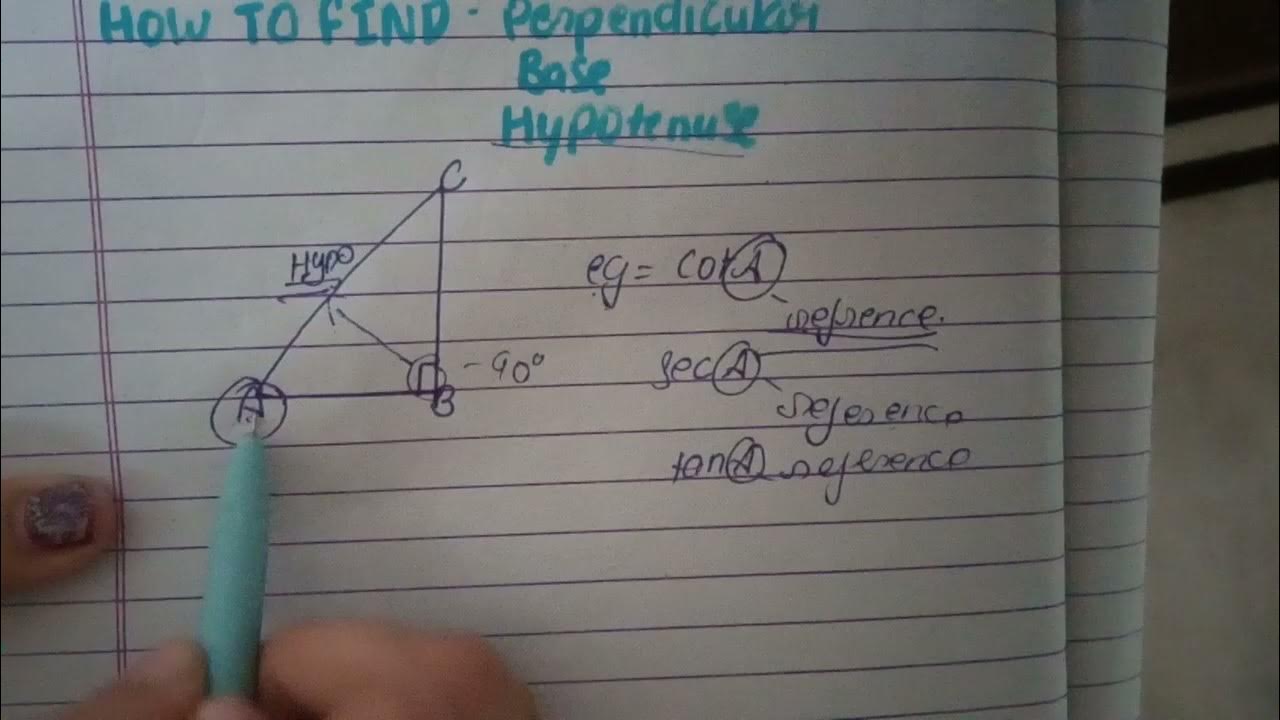 HOW TO FIND - Perpendicular
Base
Hypotenuse
C
Hypo
eg = cot A
refrence.
- 90°
sec A
A
B
reference
tan A reference